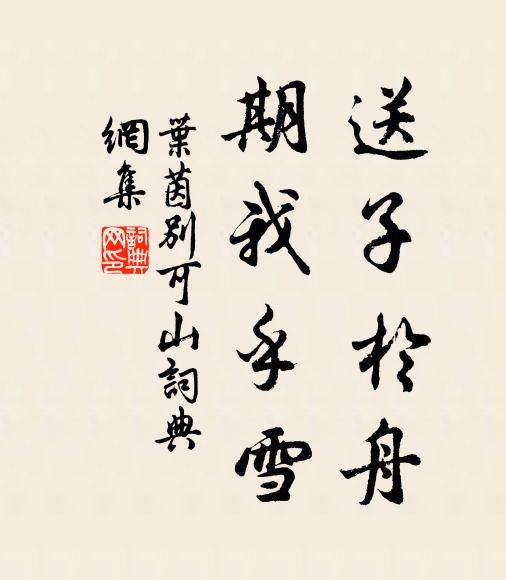 送子於舟
期我乎雪
葉茵別可山詞典
網集
詞典網印